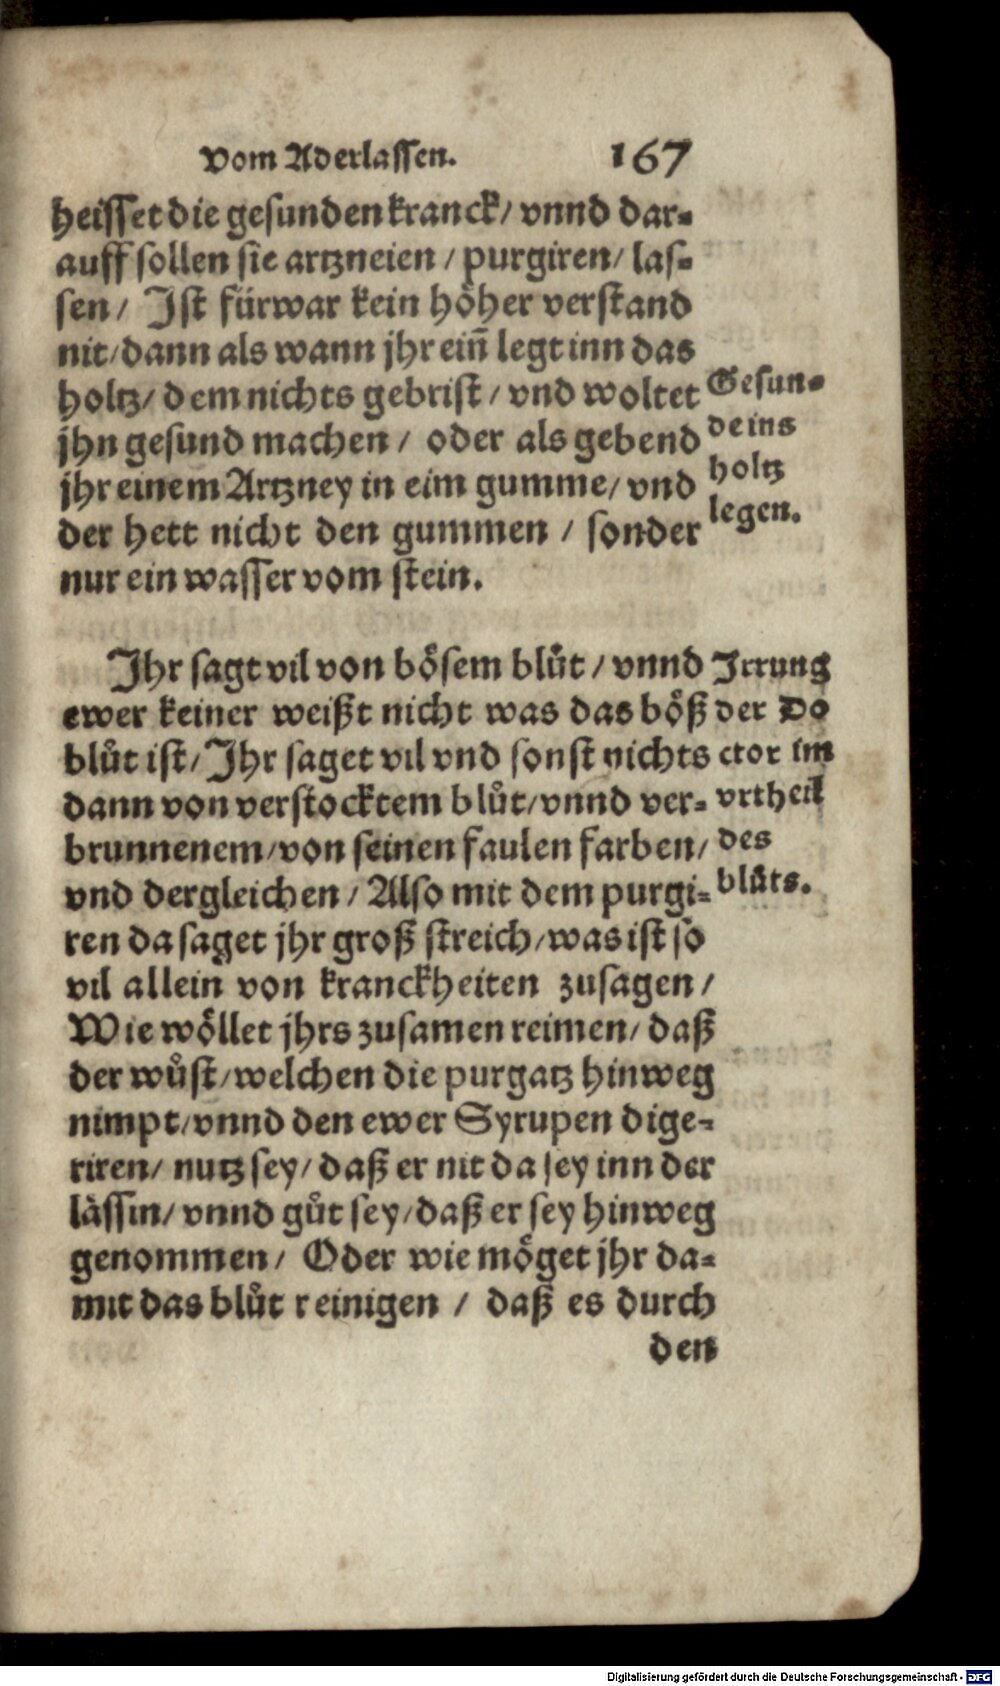 Vom Aderlassen. 167
heisset die gesunden kranck/ vnnd dar-
auff sollen sie artzneien / purgiren/ las-
sen/ Ist fürwar kein höher verstand
nit/dann als wann jhr ein̄ legt inn das
holtz/ dem nichts gebrist/ vnd woltet
jhn gesund machen / oder als gebend
jhr einem Artzney in eim gumme/ vnd
der hett nicht den gummen / sonder
nur ein wasser vom stein.
Gesun-
de ins
holtz
legen.
Ihr sagt vil von bösem blůt / vnnd
ewer keiner weißt nicht was das böß
blůt ist/ Ihr saget vil vnd sonst nichts
dann von verstocktem blůt/vnnd ver-
brunnenem/von seinen faulen farben/
vnd dergleichen / Also mit dem purgi-
ren da saget jhr groß streich/was ist so
vil allein von kranckheiten zusagen/
Wie wöllet jhrs zusamen reimen/ daß
der wůst/welchen die purgatz hinweg
nimpt/vnnd den ewer Syrupen dige-
riren/ nutz sey/ daß er nit da sey inn der
lässin/ vnnd gůt sey/daß er sey hinweg
genommen/ Oder wie möget jhr da-
mit das blůt reinigen / daß es durch
den
Irrung
der Do
ctor im
vrtheil
des
blůts.
Digitalisierung gefördert durch die Deutsche Forschungsgemeinschaft - DFG